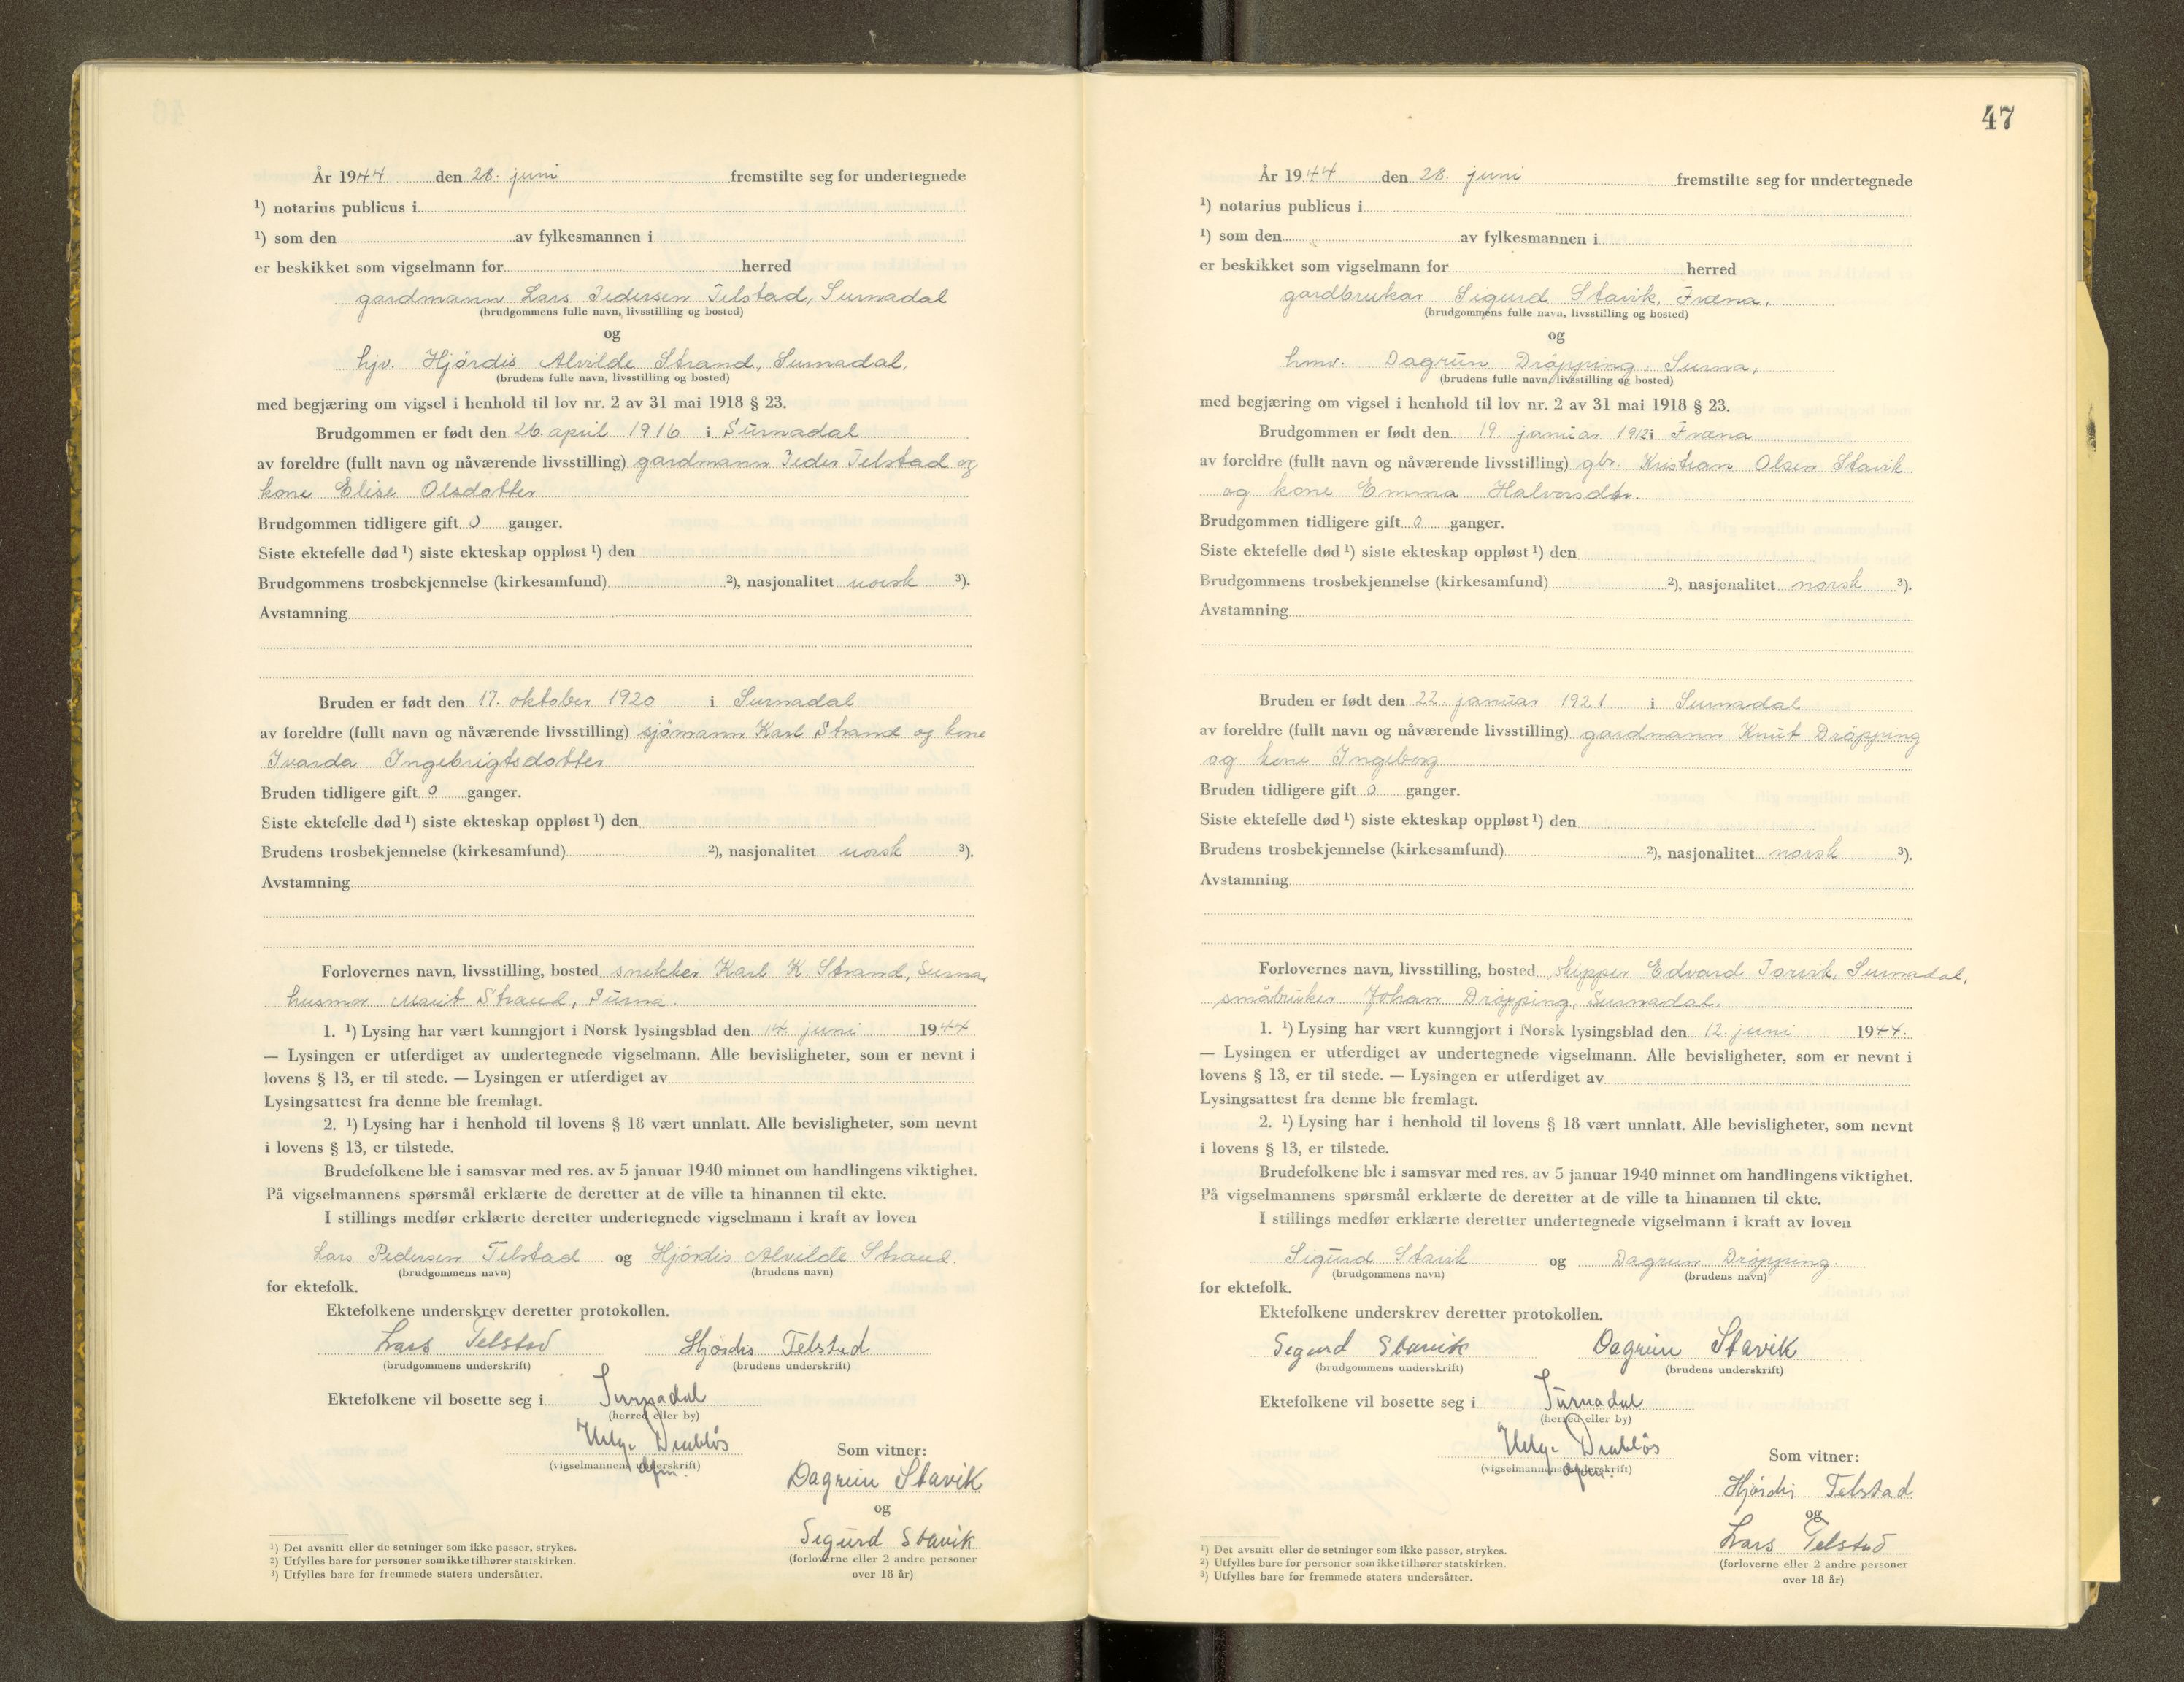 År 1944 den 28. juni fremstilte seg for undertegnede
¹) notarius publicus i
¹) som den av fylkesmannen i
er beskikket som vigselmann for herred
gardmann Lars Pedersen Telstad, Surnadal
(brudgommens fulle navn, livsstilling og bosted)
og
hjv. Hjördis Alvilde Strand, Surnadal,
(brudens fulle navn, livsstilling og bosted)
med begjæring om vigsel i henhold til lov nr. 2 av 31 mai 1918 § 23.
Brudgommen er født den 26. april 1916 i Surnadal
av foreldre (fullt navn og nåværende livsstilling) gardmann Peder Telstad og
kone Elise Olsdotter
Brudgommen tidligere gift 0 ganger.
Siste ektefelle død ¹) siste ekteskap oppløst ¹) den
Brudgommens trosbekjennelse (kirkesamfund) ²), nasjonalitet norsk ³).
Avstamning
Bruden er født den 17. oktober 1920 i Surnadal
av foreldre (fullt navn og nåværende livsstilling) sjömann Karl Strand og kone
Ivarda Ingebrigtsdotter
Bruden tidligere gift 0 ganger.
Siste ektefelle død ¹) siste ekteskap oppløst ¹) den
Brudens trosbekjennelse (kirkesamfund) ²), nasjonalitet norsk ³).
Avstamning
Forlovernes navn, livsstilling, bosted snekker Karl K. Strand, Surna,
husmor Marit Strand, Surna.
1. ¹) Lysing har vært kunngjort i Norsk lysingsblad den 14 juni 1944
— Lysingen er utferdiget av undertegnede vigselmann. Alle bevisligheter, som er nevnt i
lovens § 13, er til stede. — Lysingen er utferdiget av
Lysingsattest fra denne ble fremlagt.
2. ¹) Lysing har i henhold til lovens § 18 vært unnlatt. Alle bevisligheter, som nevnt
i lovens § 13, er tilstede.
Brudefolkene ble i samsvar med res. av 5 januar 1940 minnet om handlingens viktighet.
På vigselmannens spørsmål erklærte de deretter at de ville ta hinannen til ekte.
I stillings medfør erklærte deretter undertegnede vigselmann i kraft av loven
Lars Pedersen Telstad og Hjördis Alvilde Strand.
(brudgommens navn) (brudens navn)
for ektefolk.
Ektefolkene underskrev deretter protokollen.
Lars Telstad Hjördis Telstad
(brudgommens underskrift) (brudens underskrift)
Ektefolkene vil bosette seg i Surnadal
(herred eller by)
Helge Drabløs
(vigselmannens underskrift)
Som vitner:
Dagrun Stavik
og
Sigurd Stavik
(forloverne eller 2 andre personer
over 18 år)
¹) Det avsnitt eller de setninger som ikke passer, strykes.
²) Utfylles bare for personer som ikke tilhører statskirken.
³) Utfylles bare for fremmede staters undersåtter.
47
År 1944 den 28. juni fremstilte seg for undertegnede
¹) notarius publicus i
¹) som den av fylkesmannen i
er beskikket som vigselmann for herred
gardbrukar Sigurd Stavik, Fræna,
(brudgommens fulle navn, livsstilling og bosted)
og
hmv. Dagrun Dröpping, Surna,
(brudens fulle navn, livsstilling og bosted)
med begjæring om vigsel i henhold til lov nr. 2 av 31 mai 1918 § 23.
Brudgommen er født den 19. januar 1912 i Fræna
av foreldre (fullt navn og nåværende livsstilling) gbr. Kristian Olsen Stavik
og kone Emma Halvorsdtr.
Brudgommen tidligere gift 0 ganger.
Siste ektefelle død ¹) siste ekteskap oppløst ¹) den
Brudgommens trosbekjennelse (kirkesamfund) ²), nasjonalitet norsk ³).
Avstamning
Bruden er født den 22. januar 1921 i Surnadal
av foreldre (fullt navn og nåværende livsstilling) gardmann Knut Dröpping
og kone Ingeborg
Bruden tidligere gift 0 ganger.
Siste ektefelle død ¹) siste ekteskap oppløst ¹) den
Brudens trosbekjennelse (kirkesamfund) ²), nasjonalitet norsk ³).
Avstamning
Forlovernes navn, livsstilling, bosted skipper Edvard Torvik, Surnadal,
småbruker Johan Dröpping, Surnadal.
1. ¹) Lysing har vært kunngjort i Norsk lysingsblad den 12. juni 1944.
— Lysingen er utferdiget av undertegnede vigselmann. Alle bevisligheter, som er nevnt i
lovens § 13, er til stede. — Lysingen er utferdiget av
Lysingsattest fra denne ble fremlagt.
2. ¹) Lysing har i henhold til lovens § 18 vært unnlatt. Alle bevisligheter, som nevnt
i lovens § 13, er tilstede.
Brudefolkene ble i samsvar med res. av 5 januar 1940 minnet om handlingens viktighet.
På vigselmannens spørsmål erklærte de deretter at de ville ta hinannen til ekte.
I stillings medfør erklærte deretter undertegnede vigselmann i kraft av loven
Sigurd Stavik og Dagrun Dröpping.
(brudgommens navn) (brudens navn)
for ektefolk.
Ektefolkene underskrev deretter protokollen.
Sigurd Stavik Dagrun Stavik
(brudgommens underskrift) (brudens underskrift)
Ektefolkene vil bosette seg i Surnadal
(herred eller by)
Helge Drabløs
(vigselmannens underskrift)
Som vitner:
Hjördis Telstad
og
Lars Telstad
(forloverne eller 2 andre personer
over 18 år)
¹) Det avsnitt eller de setninger som ikke passer, strykes.
²) Utfylles bare for personer som ikke tilhører statskirken.
³) Utfylles bare for fremmede staters undersåtter.